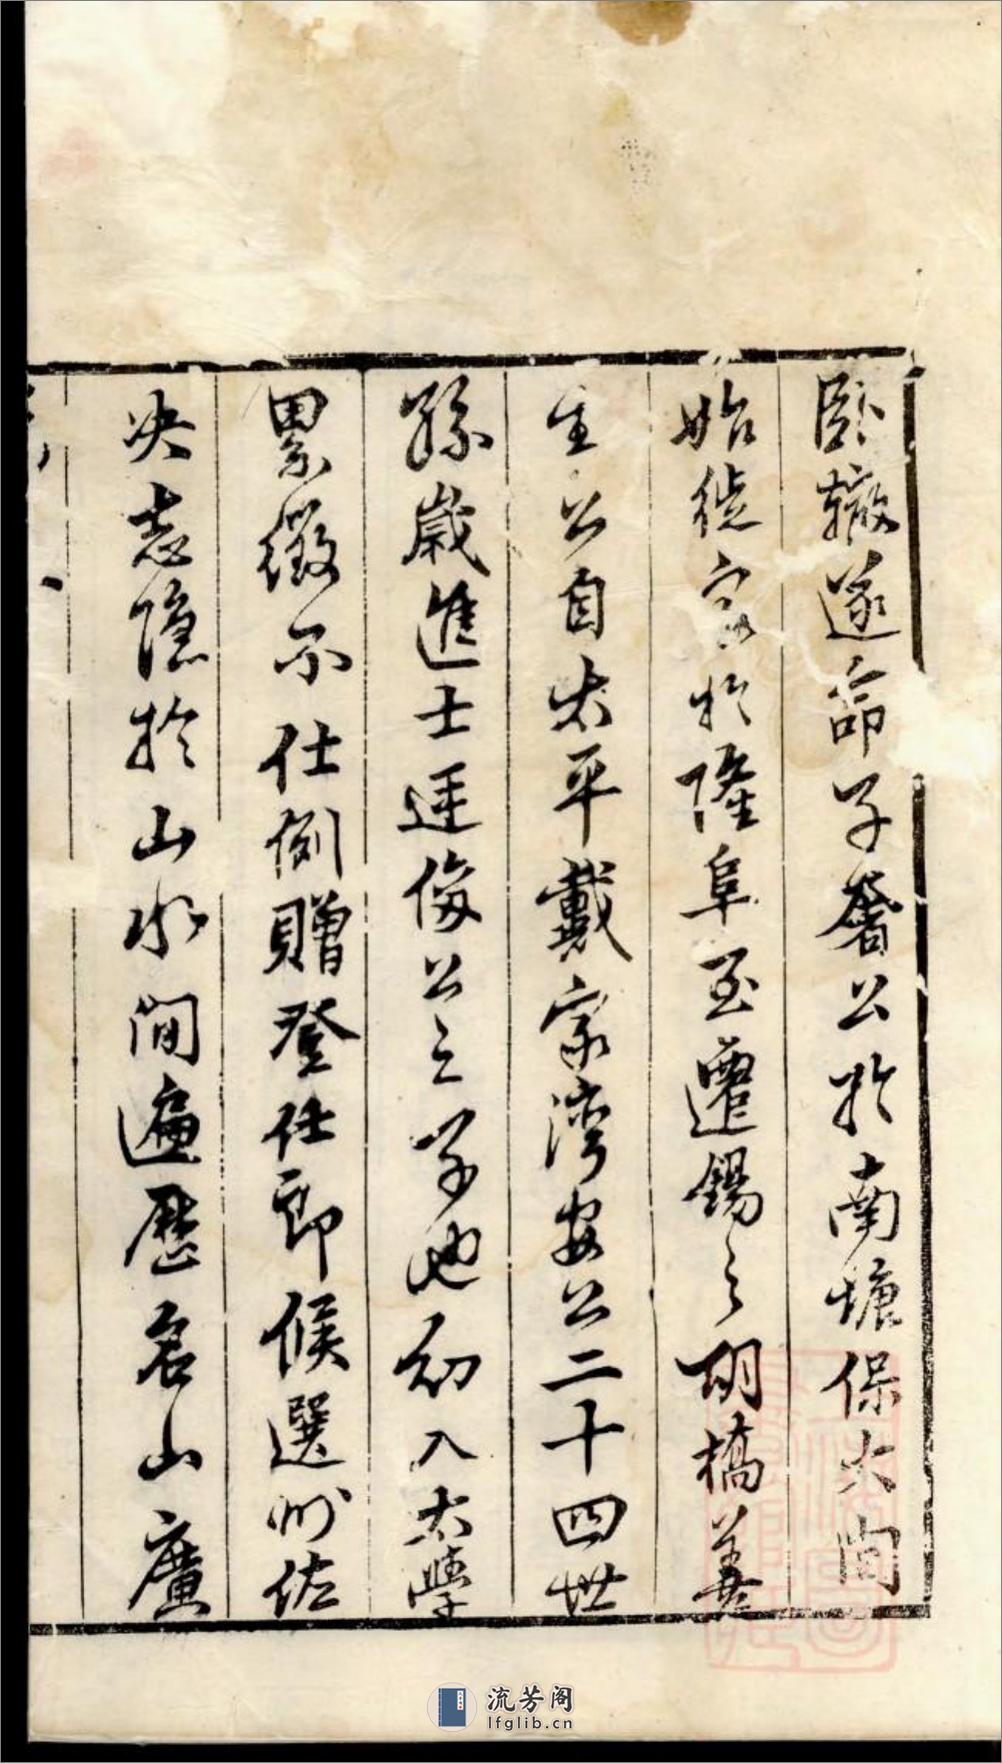 臥轍遂命子奢公於南塘保大間
始徙家於隆阜至遷錫之胡橋善
生公自太平戴家灣安公二十四世
孫歲進士廷俊公之子也初入太學
累徵不仕例贈登仕郎候選州佐
决志隱於山水間遍歷名山廣
流芳阁
lfglib.cn